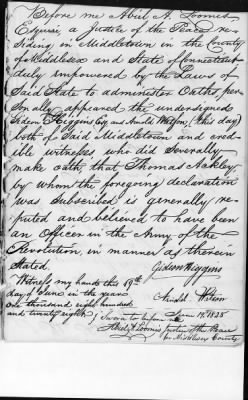 Before me Abiel A. Loomis
Esquire, a Justice of the Peace re-
siding in Middletown in the County
of Middlesex and State of Connecticut
duly empowered by the Laws of
said State to administer Oaths, per-
sonally appeared the undersigned
Gideon Higgins Esq and Arnold (this day)
both of said Middletown and cred-
ible witnesses who did severally
make oath, that Thomas
by whom the foregoing declaration
was Subscribed is generally re-
puted and believed to have been
an Officer in the Army of the
Revolution, in manner as therein
Stated.
Gideon Higgins
Witness my hand this 19th
day of June in the year
one thousand eight hundred
and twenty eight
June 19th 1828
Sworn to before me
Abiel A Loomis Justice of the Peace
for Middlesex County